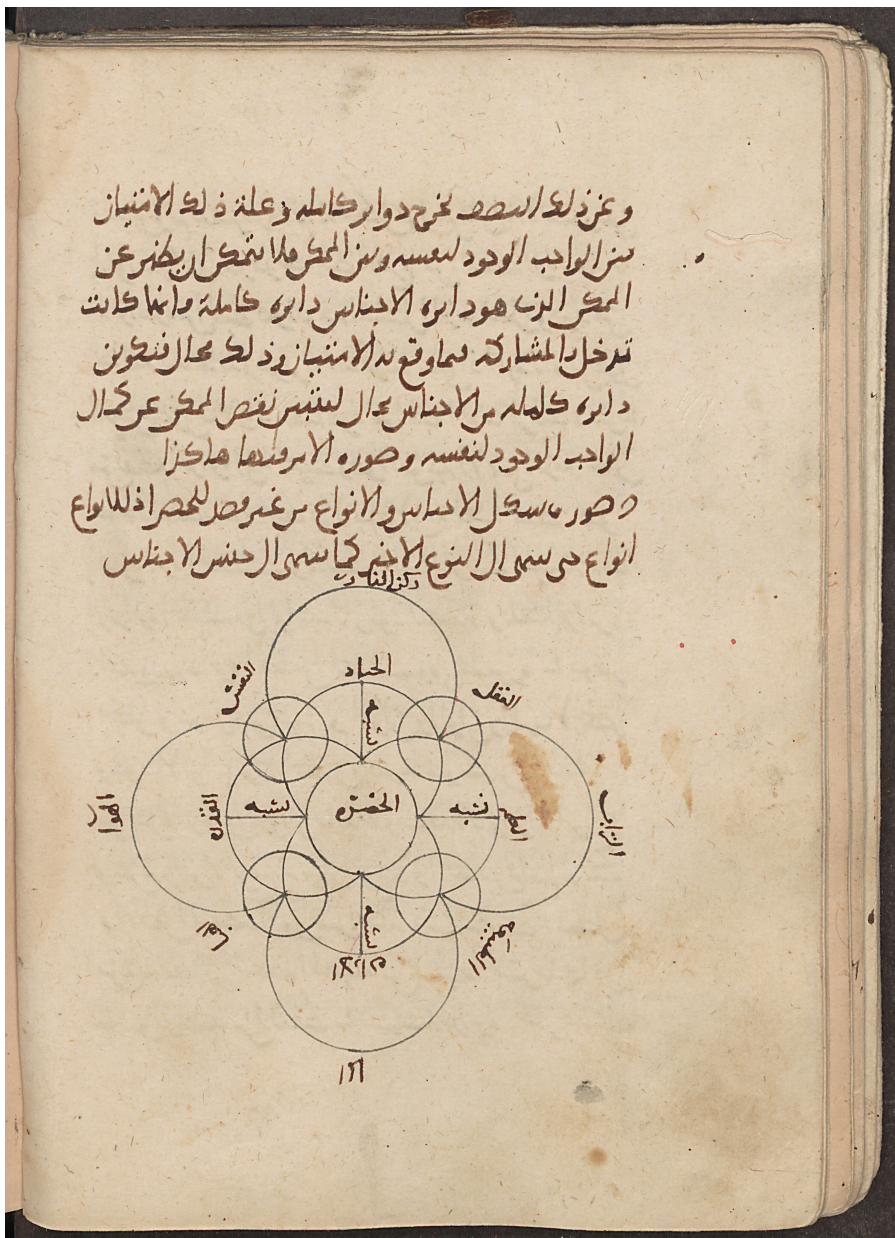 وعن ذلك النصف تخرج دواير كامله وعلة ذلك الامتياز
بين الواجب الوجود لنفسه وبين الممكن فلا يتمكن ان يظهر عن
الممكن الذي هو دايره الاجناس دايره كاملة فانها كانت
تدخل المشاركة فيما وقع به الامتياز وذلك محال فتكوين
دايره كامله من الاجناس محال ليتبين نقص الممكن عن كمال
الواجب الوجود لنفسه وصوره الامر فيها هاكذا
صورة شكل الاجناس والانواع من غير قصد للحصر اذ للانواع
انواع حتى ينتهي الى النوع الاخير كما ينتهي الى جنس الاجناس
ركن النار
الحياه
النفس
العقل
نسبه
الهوا
القدره
نسبه
الحضره
نسبه
العلم
التراب
نسبه
الاراده
الطبيعه
الما